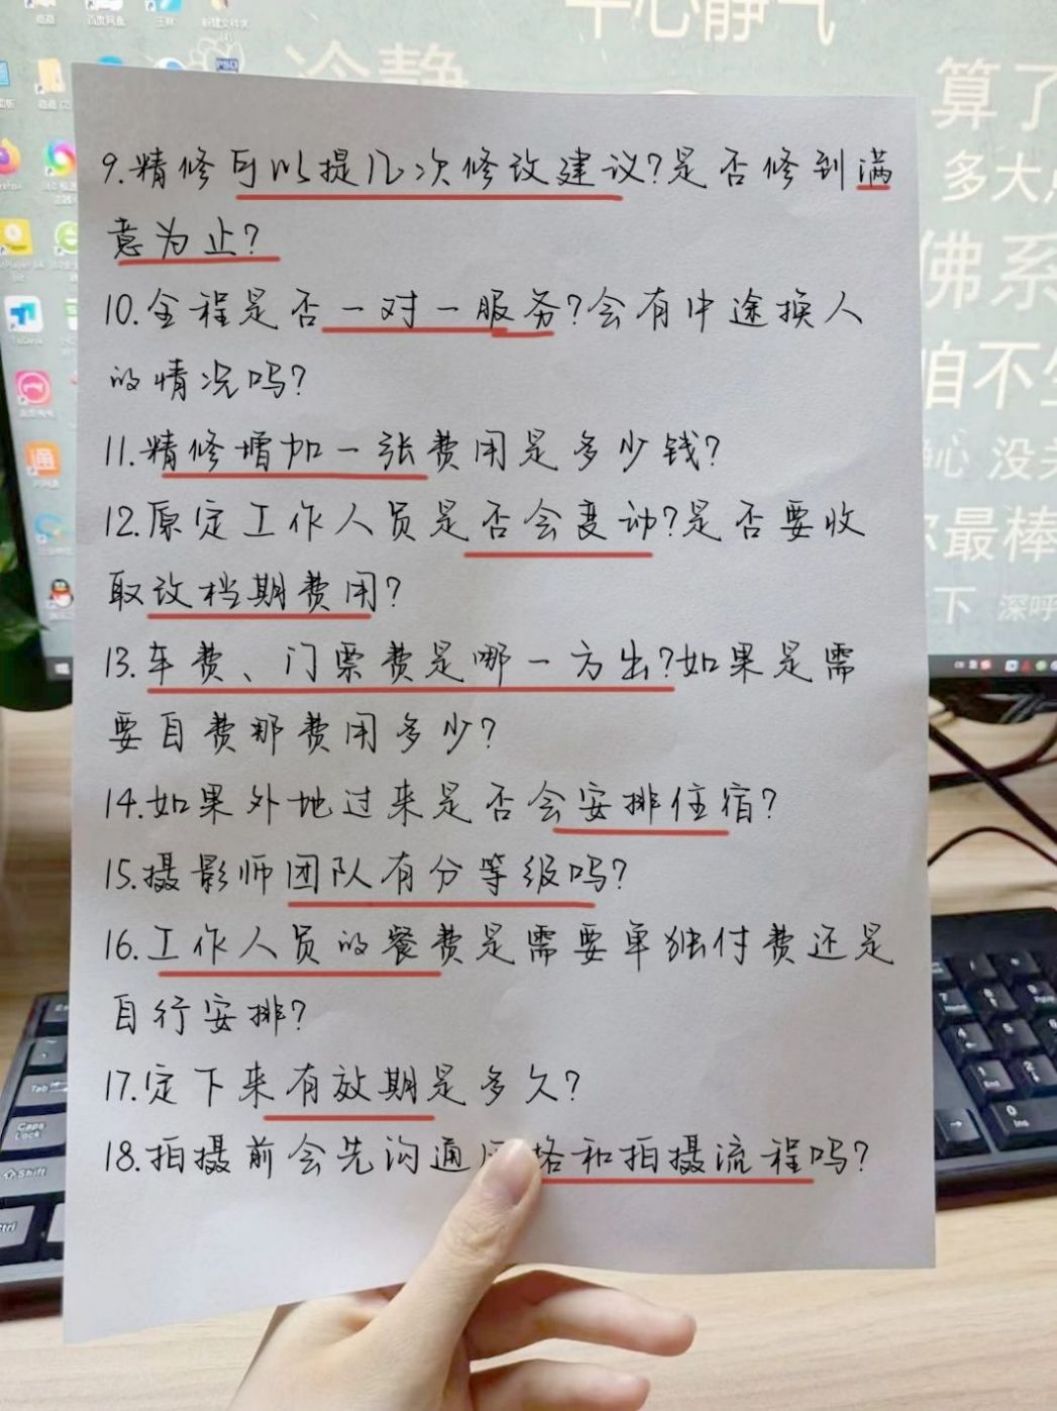 平心静气
冷静
算了
多大
佛系
咱不
静心 没
最棒
下 深呼
9.精修可以提几次修改建议?是否修到满
意为止?
10.全程是否一对一服务?会有中途换人
的情况吗?
11.精修增加一张费用是多少钱?
12.原定工作人员是否会变动?是否要收
取改档期费用?
13.车费、门票费是哪一方出?如果是需
要自费那费用多少?
14.如果外地过来是否会安排住宿?
15.摄影师团队有分等级吗?
16.工作人员的餐费是需要单独付费还是
自行安排?
17.定下来有效期是多久?
18.拍摄前会先沟通风格和拍摄流程吗?
Tab
Caps
Lock
Shift